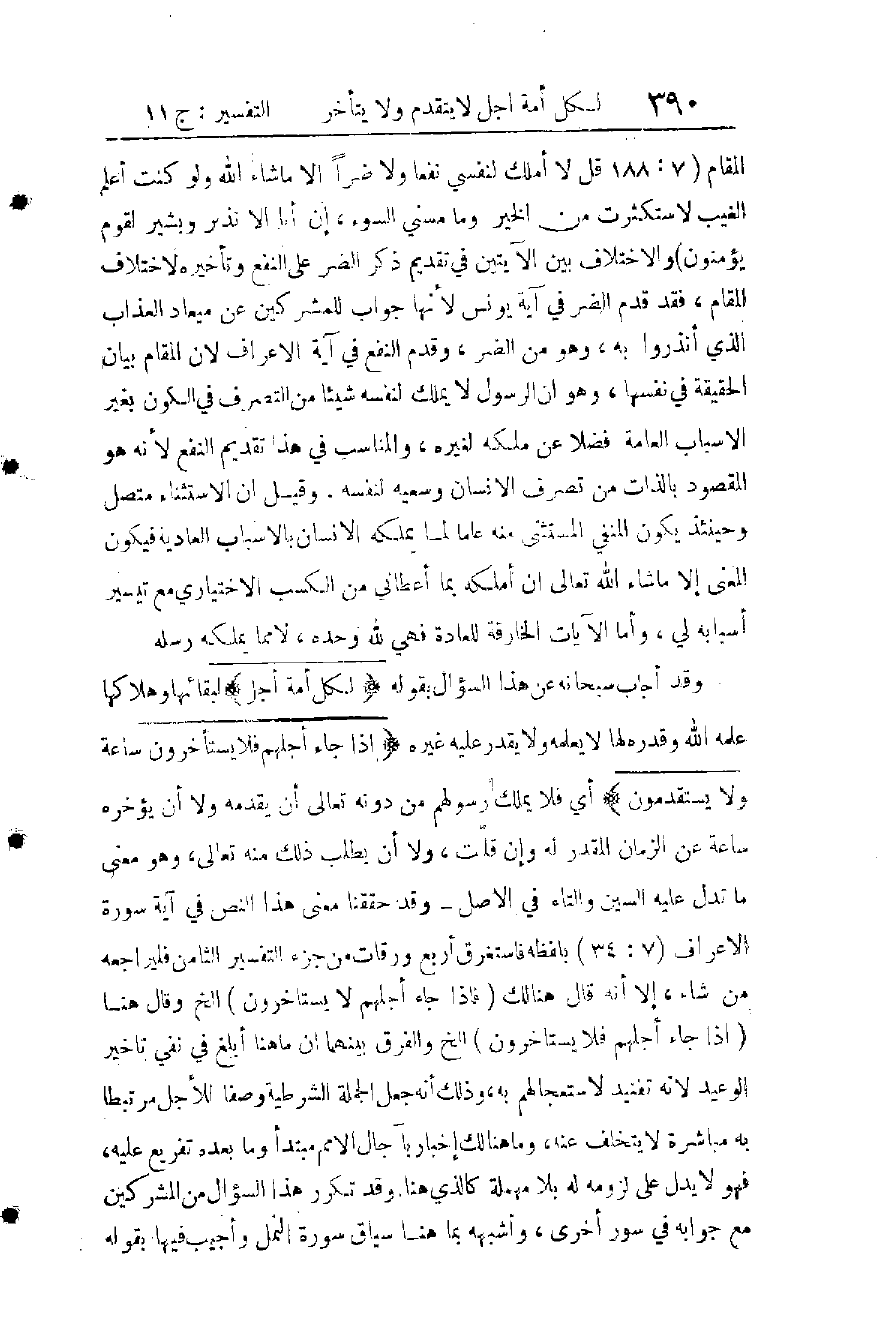 ٣٩٠ لكل أمة اجل لا يتقدم ولا يتأخر التفسير : ج ١١
المقام ( ٧ : ١٨٨ قل لا أملك لنفسي نفعا ولا ضراً الا ماشاء الله ولو كنت أعلم
الغيب لاستكثرت من الخير وما مسني السوء ، إن أنا الا نذير وبشير لقوم
يؤمنون) والاختلاف بين الآيتين في تقديم ذكر الضر على النفع وتأخيره لاختلاف
المقام ، فقد قدم الضر في آية يونس لأنها جواب للمشركين عن ميعاد العذاب
الذي أنذروا به ، وهو من الضر ، وقدم النفع في آية الاعراف لان المقام بيان
الحقيقة في نفسها ، وهو ان الرسول لا يملك لنفسه شيئا من التصرف في الكون بغير
الاسباب العامة فضلا عن ملكه لغيره ، والمناسب في هذا تقديم النفع لأنه هو
المقصود بالذات من تصرف الانسان وسعيه لنفسه . وقيل ان الاستثناء متصل
وحينئذ يكون المنفي المستثنى منه عاما لما يملكه الانسان بالاسباب العادية فيكون
المعنى إلا ماشاء الله تعالى ان أملكه بما أعطاني من الكسب الاختياري مع تيسير
أسبابه لي ، وأما الآيات الخارقة للعادة فهي لله وحده ، لا مما يملكه رسله
وقد أجاب سبحانه عن هذا السؤال بقوله ﴿ لكل أمة أجل ﴾ لبقائها وهلاكها
علمه الله وقدره لها لا يعلمه ولا يقدر عليه غيره ﴿ إذا جاء أجلهم فلا يستأخرون ساعة
ولا يستقدمون ﴾ أي فلا يملك رسولهم من دونه تعالى أن يقدمه ولا أن يؤخره
ساعة عن الزمان المقدر له وإن قلّت ، ولا أن يطلب ذلك منه تعالى، وهو معنى
ما تدل عليه السين والتاء في الاصل ـ وقد حققنا معنى هذا النص في آية سورة
الاعراف (٧ : ٣٤ ) بلفظه فاستغرق أربع ورقات من جزء التفسير الثامن فليراجعه
من شاء ، إلا أنه قال هنالك ( فاذا جاء أجلهم لا يستاخرون ) الخ وقال هنا
( اذا جاء أجلهم فلا يستاخرون ) الخ والفرق بينهما ان ماهنا أبلغ في نفي تاخير
الوعيد لانه تفنيد لاستعجالهم به، وذلك أنه جعل الجملة الشرطية وصفا للأجل مرتبطا
به مباشرة لا يتخلف عنه، وما هنالك إخبار بآجال الامم مبتدأ وما بعده تفريع عليه،
فهو لا يدل على لزومه له بلا مهملة كالذي هنا. وقد تكرر هذا السؤال من المشركين
مع جوابه في سور أخرى ، وأشبهه بما هنا سياق سورة النمل وأجيب فيها بقوله